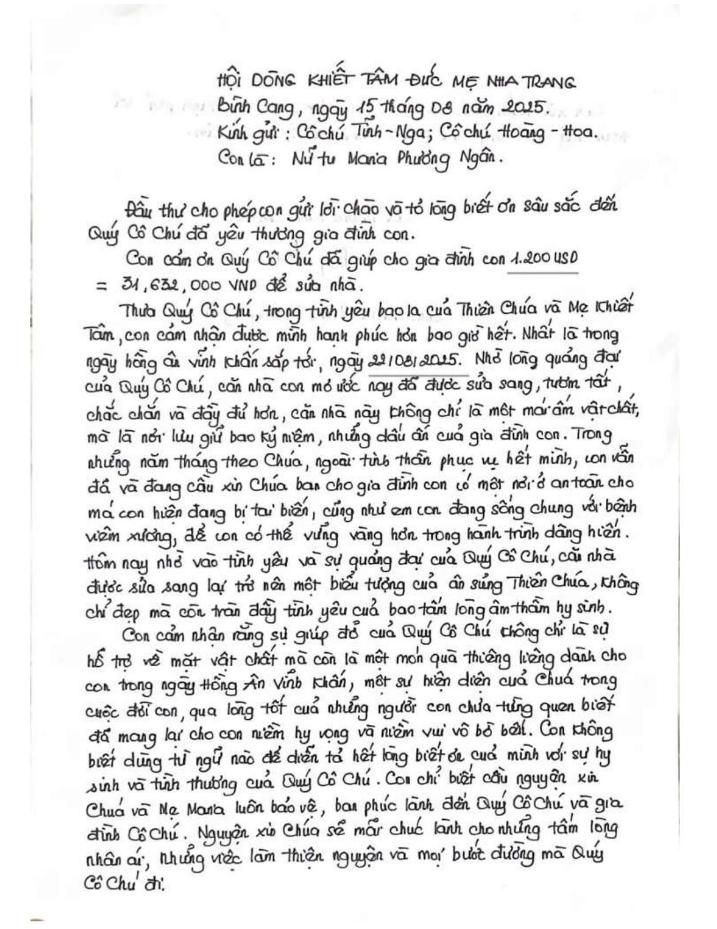 HỘI DÒNG KHIẾT TÂM ĐỨC MẸ NHA TRANG
Bình Cang, ngày 15 tháng 08 năm 2025.
Kính gửi : Cô chú Tỉnh - Nga; Cô chú Hoàng - Hoa.
Con là : Nữ tu Maria Phương Ngân.
Đầu thư cho phép con gửi lời chào và tỏ lòng biết ơn sâu sắc đến
Quý Cô Chú đã yêu thương gia đình con.
Con cảm ơn Quý Cô Chú đã giúp cho gia đình con 1.200 USD
= 31,632,000 VND để sửa nhà.
Thưa Quý Cô Chú, trong tình yêu bao la của Thiên Chúa và Mẹ Khiết
Tâm, con cảm nhận được mình hạnh phúc hơn bao giờ hết. Nhất là trong
ngày hồng ân vĩnh khấn sắp tới, ngày 22/08/2025. Nhờ lòng quảng đại
của Quý Cô Chú, căn nhà con mơ ước nay đã được sửa sang, tươm tất,
chắc chắn và đầy đủ hơn, căn nhà này không chỉ là một mái ấm vật chất,
mà là nơi lưu giữ bao kỷ niệm, những dấu ấn của gia đình con. Trong
những năm tháng theo Chúa, ngoài tinh thần phục vụ hết mình, con vẫn
đã và đang cầu xin Chúa ban cho gia đình con có một nơi ở an toàn cho
má con hiện đang bị tai biến, cũng như em con đang sống chung với bệnh
viêm xương, để con có thể vững vàng hơn trong hành trình dâng hiến.
Hôm nay nhờ vào tình yêu và sự quảng đại của Quý Cô Chú, căn nhà
được sửa sang lại trở nên một biểu tượng của ân sủng Thiên Chúa, không
chỉ đẹp mà còn tràn đầy tình yêu của bao tấm lòng âm thầm hy sinh.
Con cảm nhận rằng sự giúp đỡ của Quý Cô Chú không chỉ là sự
hỗ trợ về mặt vật chất mà còn là một món quà thiêng liêng dành cho
con trong ngày Hồng Ân Vĩnh Khấn, một sự hiện diện của Chúa trong
cuộc đời con, qua lòng tốt của những người con chưa từng quen biết
đã mang lại cho con niềm hy vọng và niềm vui vô bờ bến. Con không
biết dùng từ ngữ nào để diễn tả hết lòng biết ơn của mình với sự hy
sinh và tình thương của Quý Cô Chú. Con chỉ biết cầu nguyện xin
Chúa và Mẹ Maria luôn bảo vệ, ban phúc lành đến Quý Cô Chú và gia
đình Cô Chú. Nguyện xin Chúa sẽ mãi chúc lành cho những tấm lòng
nhân ái, những việc làm thiện nguyện và mọi bước đường mà Quý
Cô Chú đi.